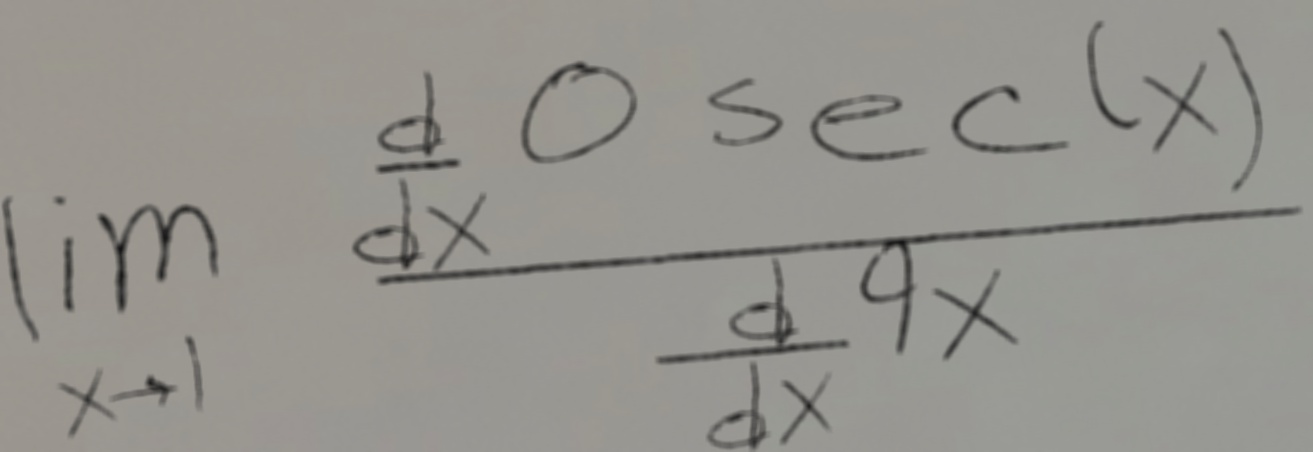 \lim_{x \to 1} \frac{\frac{d}{dx} 0 \sec(x)}{\frac{d}{dx} 9x}